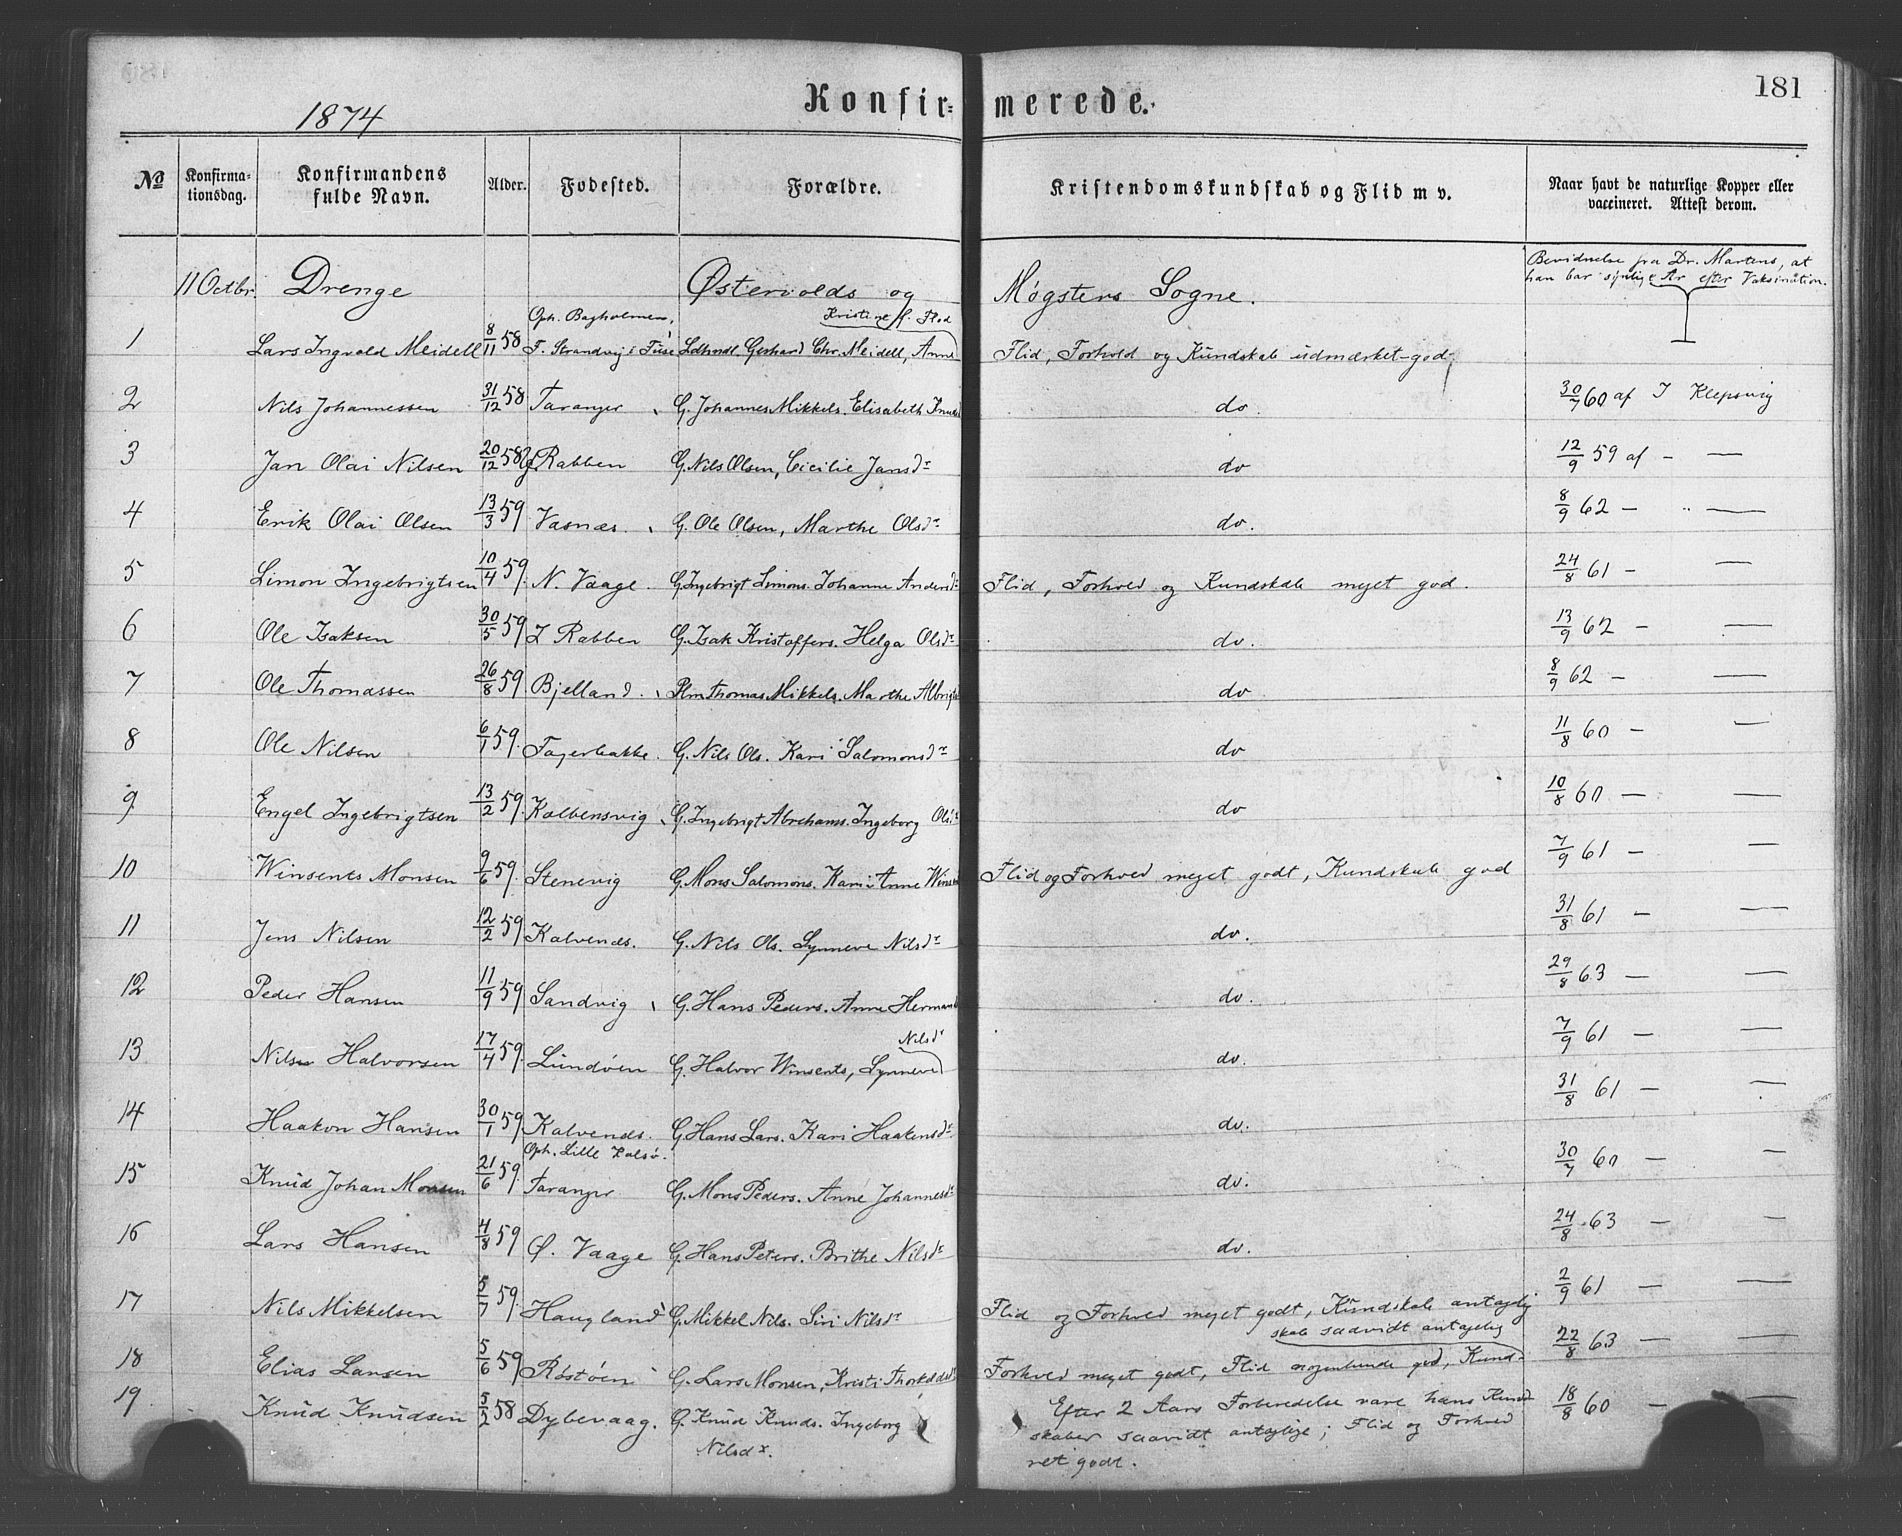 181
1874 Konfir= merede.
№ Konfirma-tionsdag. Konfirmandens fulde Navn. Alder. Fødested. Forældre. Kristendomskundskab og Flid m v. Naar havt de naturlige Kopper eller vaccineret. Attest derom.
Bevidnelse fra Dr. Martens, at
han bar synlige Ar efter Vaksination.
11 Octbr. Drenge Østervolds og Møgsters Sogne.
Oph. Bagholmen, Kristine f. Flod
1 Lars Ingvald Meidell 8/11 58 F. Strandvig i Fuse Ldhndl. Gerhard Chr. Meidell, Anne Flid, Forhold og Kundskab udmærket-god
2 Nils Johannessen 31/12 58 Taranger G. Johannes Mikkels. Elisabeth Knuds do 30/7 60 af I Klepsvig
3 Jan Olai Nilsen 20/12 58 Rabben G. Nils Olsen, Cicilie Jansdr do 12/9 59 af — —
4 Erik Olai Olsen 13/3 59 Vasnæs G. Ole Olsen, Marthe Olsdr do. 8/9 62 — —
5 Simon Ingebrigtsen 10/4 59. N. Vaage. G. Ingebrigt Simons. Johanne Andersdr Flid, Forhold og Kundskab meget god. 24/8 61 — —
6 Ole Isaksen 30/5 59 Rabben G. Isak Kristoffers. Helga Olsdr do. 13/9 62 — —
7 Ole Thomassen 26/8 59 Bjelland. Plm Thomas Mikkels. Marthe Albrigts do 8/9 62 — —
8 Ole Nilsen 6/1 59. Fagerbakke. G. Nils Ols. Kari Salomonsdr do 11/8 60 — —
9 Engel Ingebrigtsen 13/2 59. Kolbensvig G. Ingebrigt Abrahams. Ingeborg Olsdr do 10/8 60 — —
10 Winsents Monsen 9/6 59. Stenevig G. Mons Salomons. Kari Anne Winsents Flid og Forhold meget godt, Kundskab god 7/9 61 — —
11 Jens Nilsen 12/2 59 Kalvenæs. G. Nils Ols. Synneve Nilsdr do. 31/8 61 — —
12 Peder Hansen 11/9 59 Sandvig G. Hans Peders. Anne Hermands do. 29/8 63 — —
Nilsdr
13 Nils Halvorsen 17/4 59. Lundøen G. Halvor Winsents, Synneve do. 7/9 61 — —
14 Haakon Hansen 30/1 59. Kalvenæs. G. Hans Lars. Kari Haakensdr do. 31/8 61 — —
Oph. Lille Kalsø.
15 Knud Johan Monsen 21/6 59. Taranger G. Mons Peders. Anne Johannesdr do. 30/7 60 — —
16 Lars Hansen 4/8 59 Ø. Vaage G. Hans Peters. Brithe Nilsdr do. 24/8 63 — —
17 Nils Mikkelsen 5/7 59. Haugland G. Mikkel Nils. Siri Nilsdr Flid og Forhold meget godt, Kundskab antagelig 2/9 61 — —
skab saavidt antagelig
18 Elias Larsen 5/6 59 Røstøen G. Lars Monsen, Kristi Thorkildsdr Forhold meget godt, Flid nogenlunde god, Kund- 22/8 63 — —
19 Knud Knudsen 5/2 58 Dybevaag. G. Knud Knuds. Ingeborg Nilsdr. Efter 2 Aars Forberedelse vare hans Kund 18/8 60 — —
skaber saavidt antaglige; Flid og Forhold
ret godt.